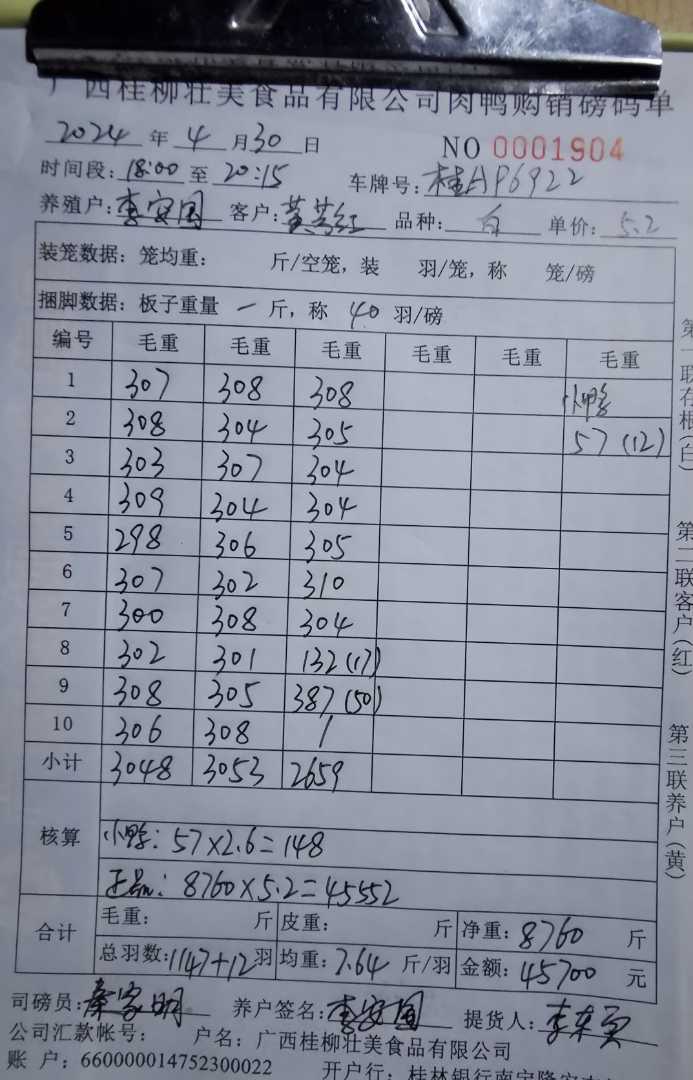 广西桂柳壮美食品有限公司肉鸭购销磅码单
2024 年 4 月 30 日 NO 0001904
时间段: 18:00 至 20:15 车牌号: 桂AP6922
养殖户: 李安国 客户: 黄芳红 品种: 白 单价: 5.2
装笼数据: 笼均重: 斤/空笼, 装 羽/笼, 称 笼/磅
捆脚数据: 板子重量 一 斤, 称 40 羽/磅
编号 毛重 毛重 毛重 毛重 毛重 毛重
1 307 308 308 小鸭
2 308 304 305 57 (12)
3 303 307 304
4 309 304 304
5 298 306 305
6 307 302 310
7 300 308 304
8 302 301 132 (17)
9 308 305 387 (50)
10 306 308 /
小计 3048 3053 2659
核算
小鸭: 57×2.6=148
正品: 8760×5.2=45552
合计
毛重: 斤 皮重: 斤 净重: 8760 斤
总羽数: 1147+12 羽 均重: 7.64 斤/羽 金额: 45700 元
司磅员: 秦家明 养户签名: 李安国 提货人: 李
公司汇款帐号: 户名: 广西桂柳壮美食品有限公司
账 户: 660000014752300022 开户行: 桂林银行南宁隆安
第一联存根(白) 第二联客户(红) 第三联养户(黄)